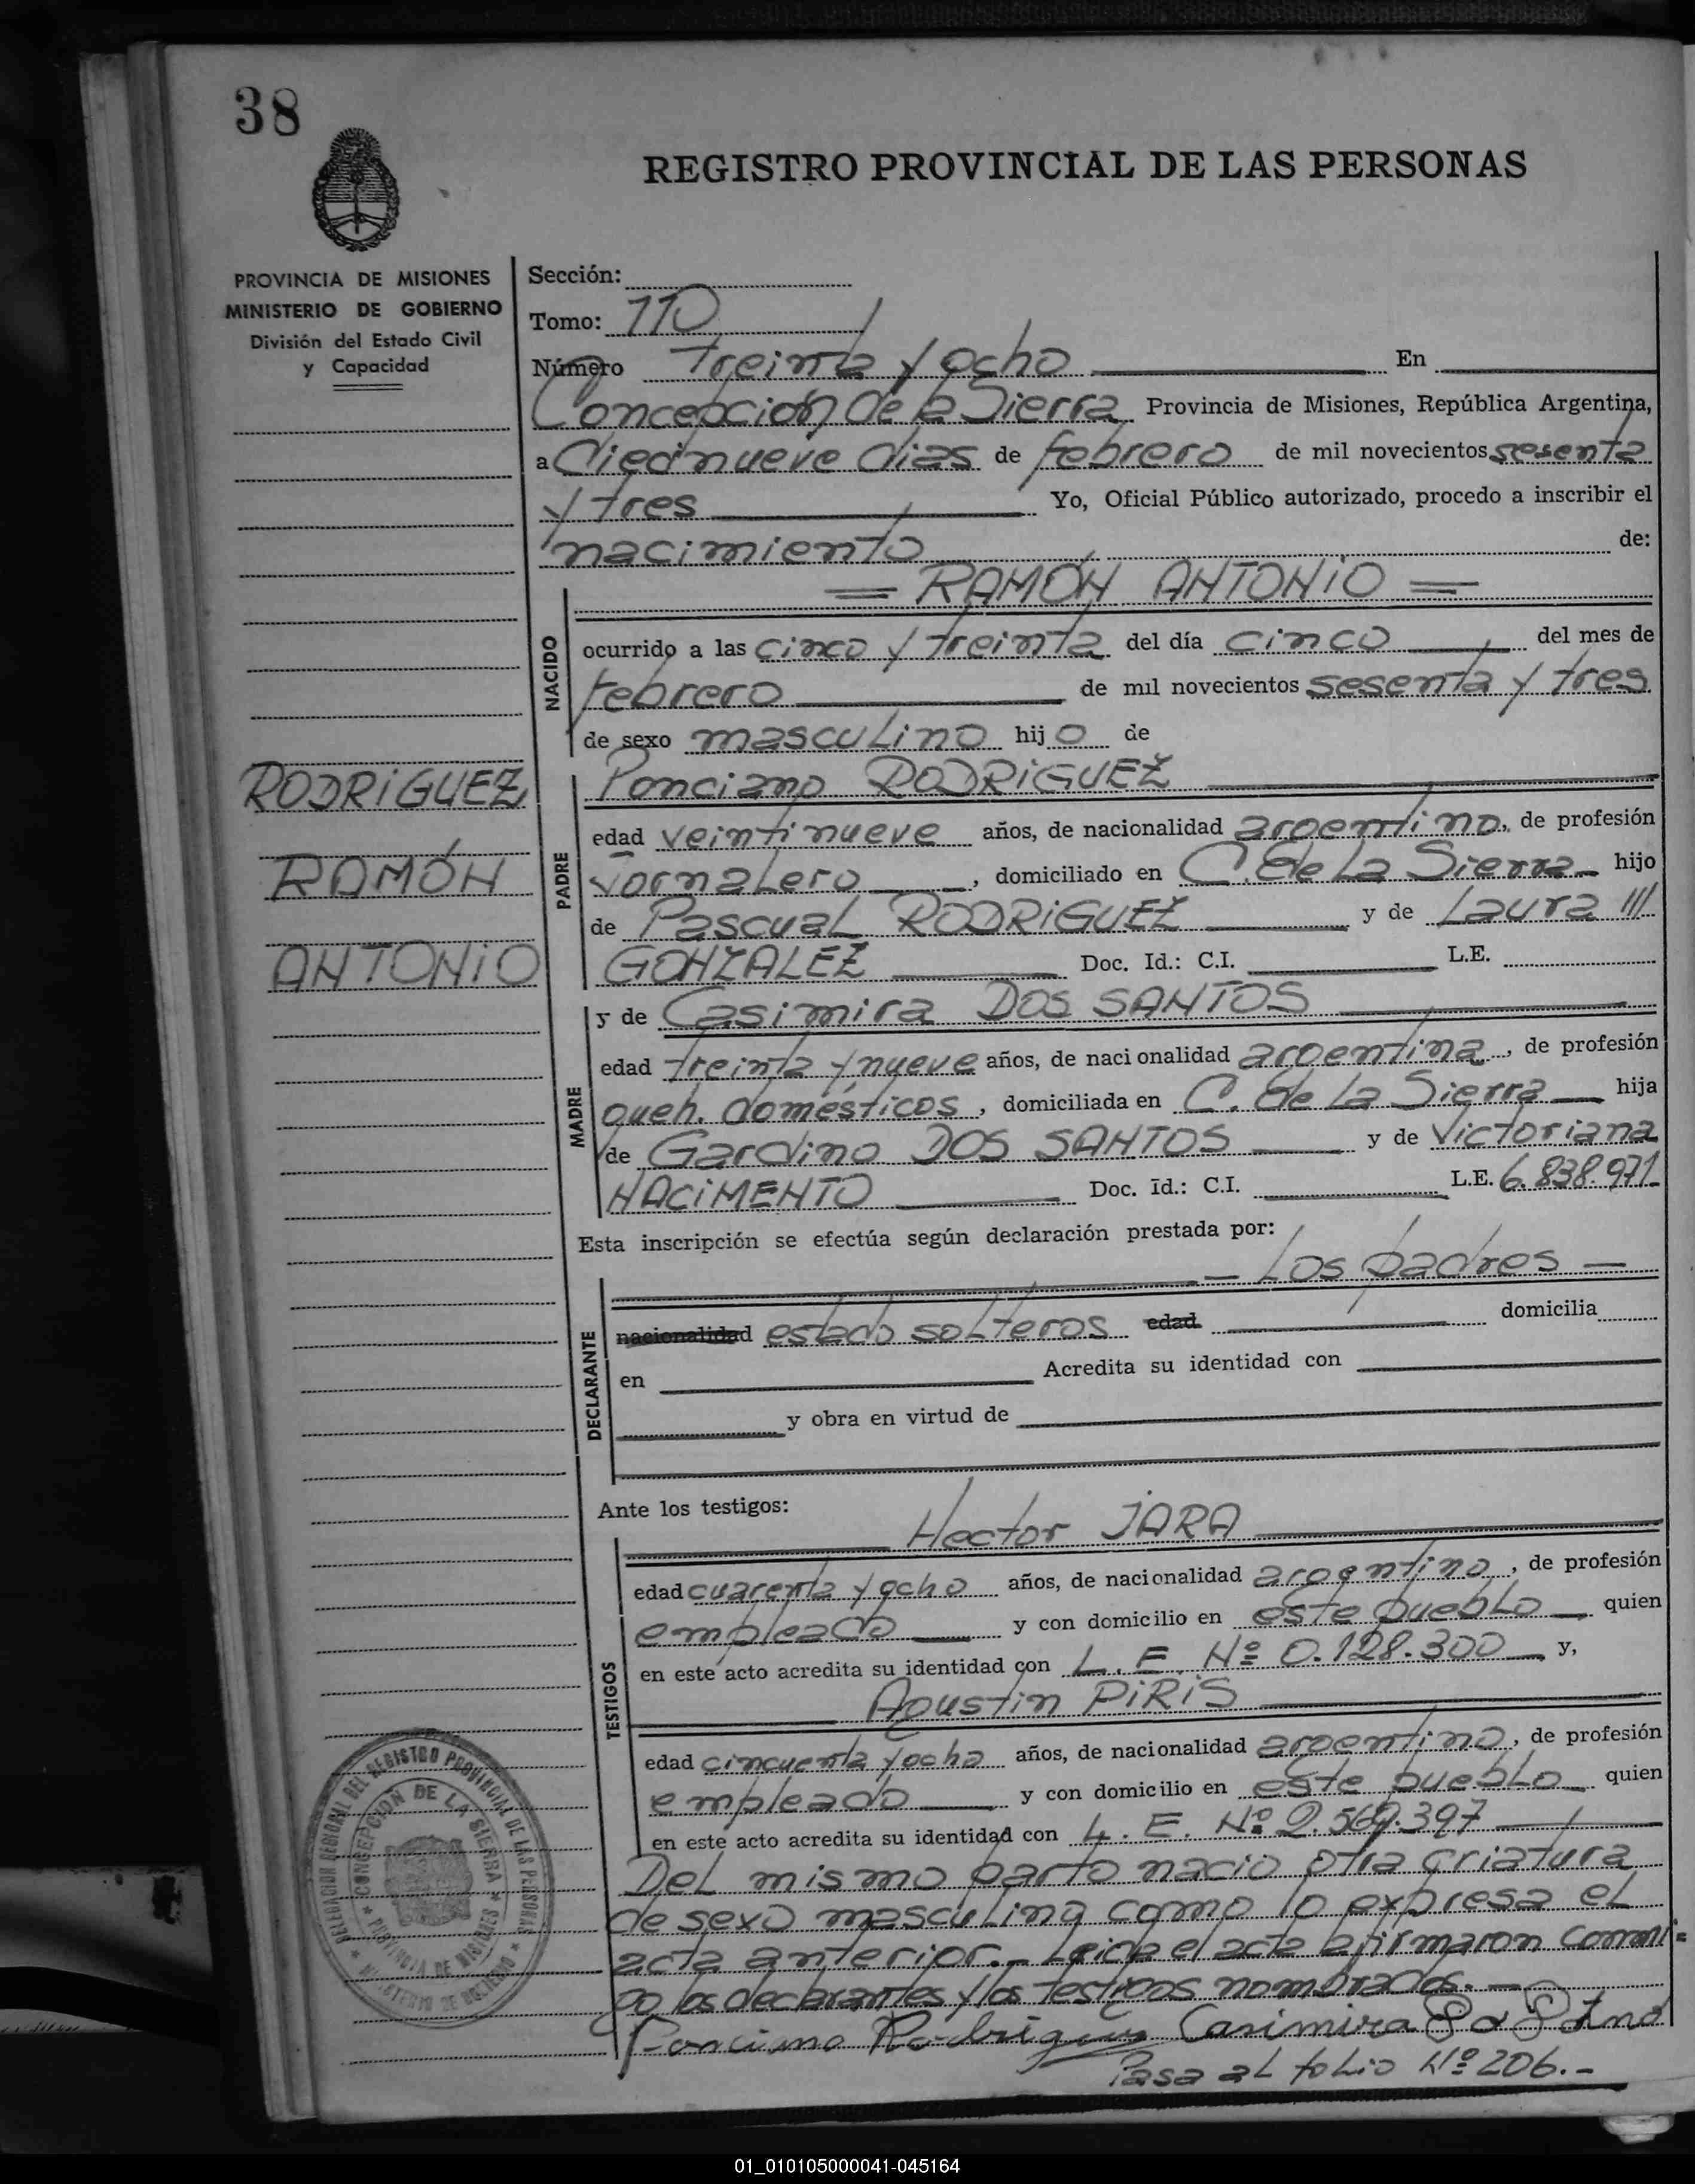 38
REGISTRO PROVINCIAL DE LAS PERSONAS
PROVINCIA DE MISIONES
MINISTERIO DE GOBIERNO
División del Estado Civil
y Capacidad
Sección:
Tomo: 110
Número Treinta y ocho En
Concepción de la Sierra Provincia de Misiones, República Argentina,
a diecinueve dias de febrero de mil novecientos sesenta
y tres Yo, Oficial Público autorizado, procedo a inscribir el
nacimiento de:
= RAMÓN ANTONIO =
NACIDO
ocurrido a las cinco y treinta del día cinco del mes de
febrero de mil novecientos sesenta y tres
de sexo masculino hijo de
RODRIGUEZ,
RAMÓN
ANTONIO
PADRE
Ponciano RODRIGUEZ
edad veintinueve años, de nacionalidad argentino, de profesión
Jornalero, domiciliado en C. de La Sierra hijo
de Pascual RODRIGUEZ y de Laura ///
GONZALEZ Doc. Id.: C.I. L.E.
MADRE
y de Casimira DOS SANTOS
edad treinta y nueve años, de nacionalidad argentina, de profesión
queh. domésticos, domiciliada en C. de La Sierra hija
de Gardino DOS SANTOS y de Victoriana
NACIMENTO Doc. Id.: C.I. L.E. 6.838.971
Esta inscripción se efectúa según declaración prestada por:
— Los padres —
DECLARANTE
nacionalidad estado solteros edad domicilia
en Acredita su identidad con
y obra en virtud de
Ante los testigos:
TESTIGOS
Hector JARA
edad cuarenta y ocho años, de nacionalidad argentino, de profesión
empleado y con domicilio en este pueblo quien
en este acto acredita su identidad con L. E. Nº 0.128.300 y,
Agustin PIRIS
edad cincuenta y ocho años, de nacionalidad argentino, de profesión
empleado y con domicilio en este pueblo quien
en este acto acredita su identidad con L. E. Nº 2.569.397
Del mismo parto nació otra criatura
de sexo masculino como lo expresa el
acta anterior.- Leida el acta afirmaron conmi=
go los declarantes y los testigos nombrados. —
Ponciano Rodriguez Casimira
Pasa al folio Nº 206.-
DELEGACION REGIONAL DEL REGISTRO PROVINCIAL DE LAS PERSONAS
* CONCEPCION DE LA SIERRA * PROVINCIA DE MISIONES
* MINISTERIO DE GOBIERNO *
01_010105000041-045164